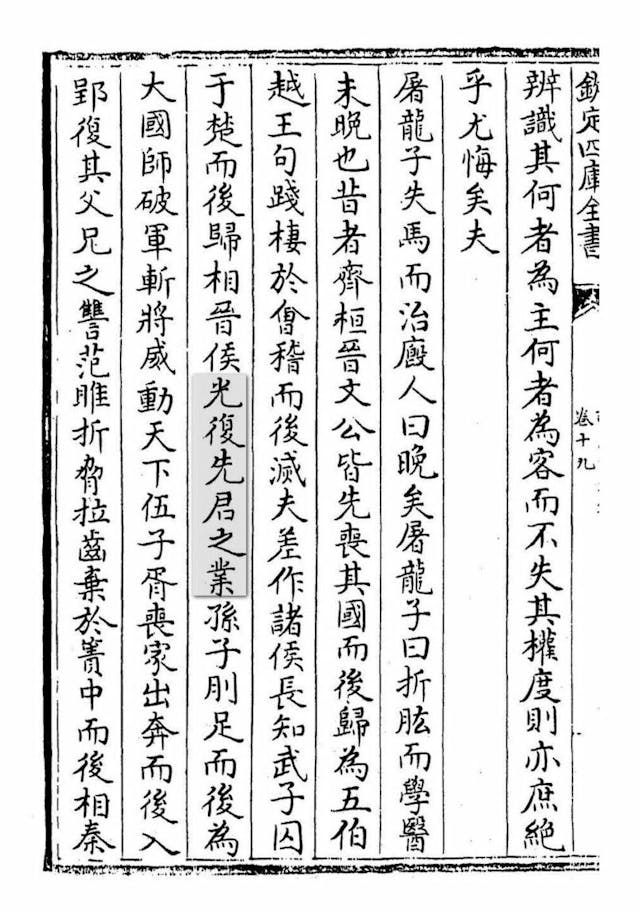 欽定四庫全書
卷十九
辨識其何者為主何者為客而不失其權度則亦庶絕
乎尤悔矣夫
屠龍子失馬而治廄人曰晚矣屠龍子曰折肱而學醫
未晚也昔者齊桓晉文公皆先喪其國而後歸為五伯
越王句踐棲於會稽而後滅夫差作諸侯長知武子囚
于楚而後歸相晉侯光復先君之業孫子刖足而後為
大國師破軍斬將威動天下伍子胥喪家出奔而後入
郢復其父兄之讐范雎折脅拉齒棄於簀中而後相秦